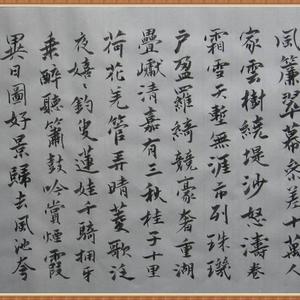 風簾翠幕參差十萬人
家雲樹繞堤沙怒濤卷
霜雪天塹無涯市列珠璣
戶盈羅綺競豪奢重湖
疊巘清嘉有三秋桂子十里
荷花羌管弄晴菱歌泛
夜嬉〻釣叟蓮娃千騎擁牙
乘醉聽簫鼓吟賞煙霞
異日圖好景歸去鳳池夸